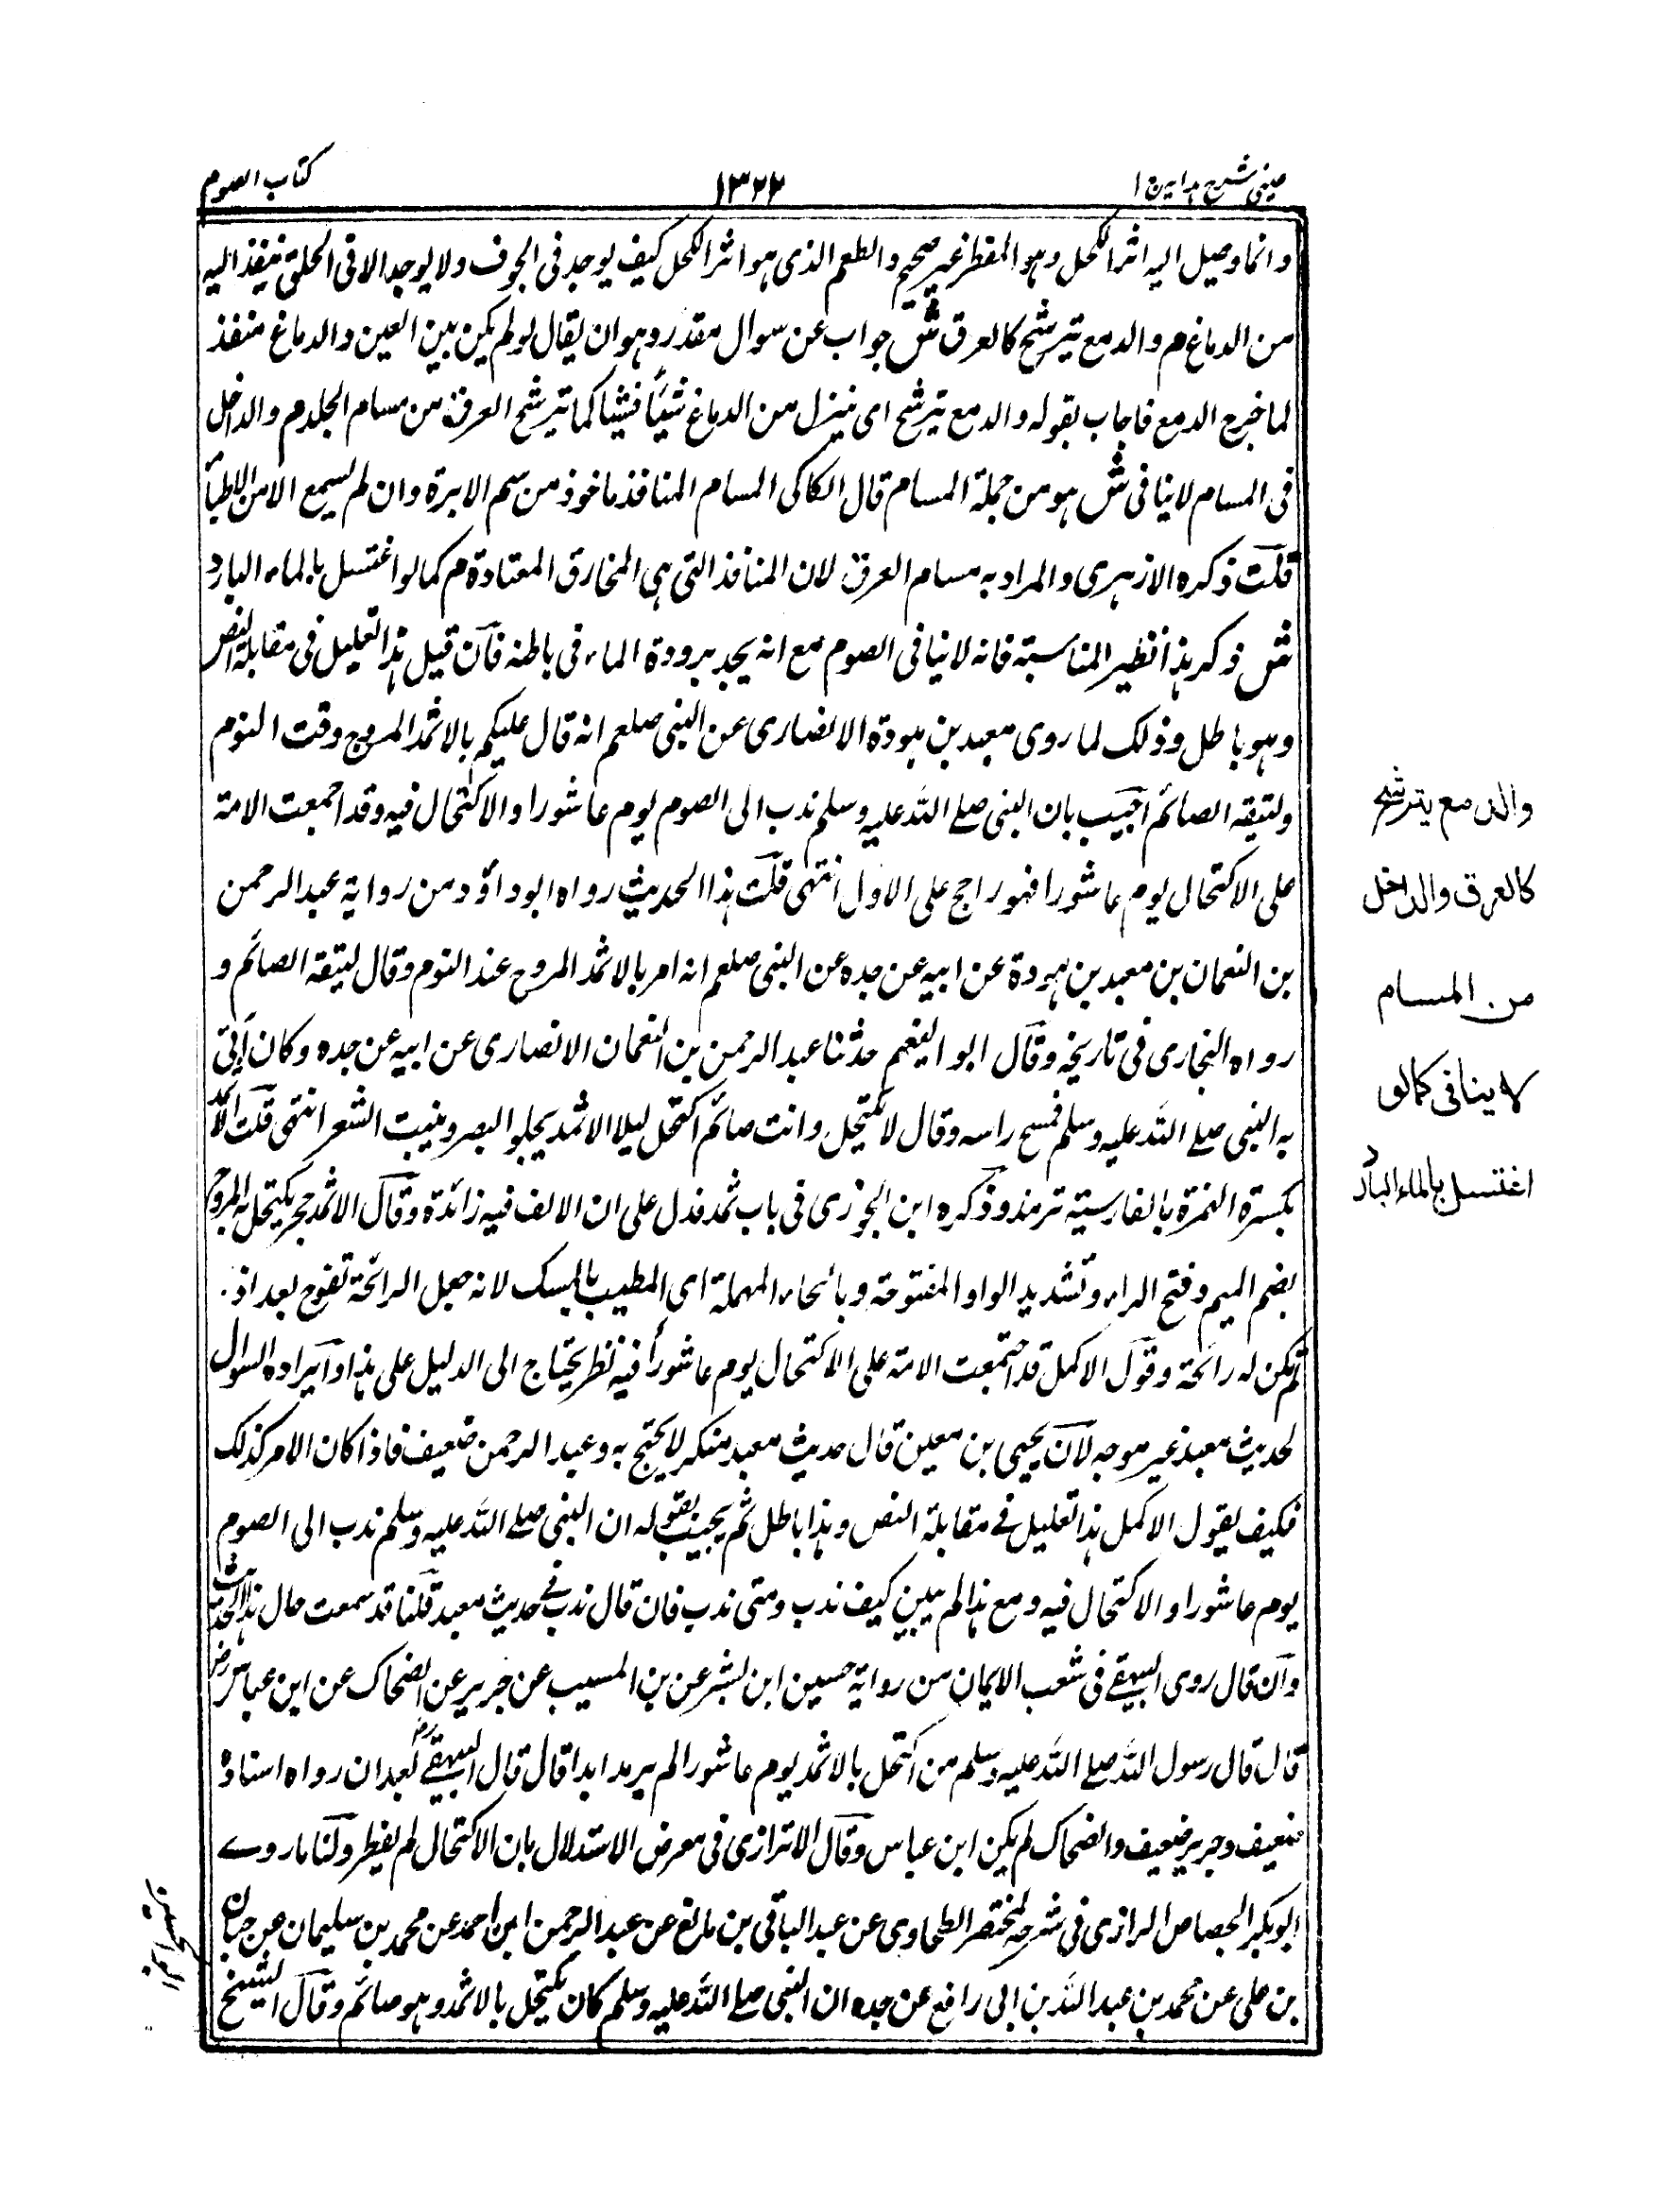 عینی شرح ہدایہ ج ۱
۱۳۲۲
کتاب الصوم
وانما وصل الیہ اثر الکحل وہو المفطر غیر صحیح والطعم الذی ہو اثر الکحل کیف یوجد فی الجوف ولا یوجد الا فی الحلق ینفذ الیہ
من الدماغ م والدمع یترشح کالعرق ش جواب عن سوال مقدر وہو ان یقال لو لم یکن بین العین والدماغ منفذ
لما خرج الدمع فاجاب بقولہ والدمع یترشح ای ینزل من الدماغ شیئا فشیئا کما یترشح العرق من مسام الجلد م والداخل
فی المسام لا ینافی ش ہو من جملۃ المسام قال الکاکی المسام المنافذ ماخوذ من سم الابرۃ وان لم یسمع الا من الاطبأ
قلت ذکرہ الازہری والمراد بہ مسام العرق لان المنافذ التی ہی المخارق المعتادۃ م کما لو اغتسل بالماء البارد
ش ذکر ہذا نظیر المناسبۃ فانہ لا ینافی الصوم مع انہ یجد برودۃ الماء فی باطنہ فان قیل ہذا تعلیل فی مقابلۃ النص
وہو باطل وذلک لما روی معبد بن ہوذۃ الانصاری عن النبی صلعم انہ قال علیکم بالاثمد المروح وقت النوم
ولیتقہ الصائم اجیب بان النبی صلے اللہ علیہ وسلم ندب الی الصوم یوم عاشورا والاکتحال فیہ وقد اجمعت الامۃ
علی الاکتحال یوم عاشورا فہو راجح علی الاول انتہی قلت ہذا الحدیث رواہ ابوداؤد من روایۃ عبدالرحمن
بن النعمان بن معبد بن ہوذۃ عن ابیہ عن جدہ عن النبی صلعم انہ امر بالاثمد المروح عند النوم وقال لیتقہ الصائم و
رواہ البخاری فی تاریخہ وقال ابو النعیم حدثنا عبدالرحمن بن النعمان الانصاری عن ابیہ عن جدہ وکان اُتی
بہ النبی صلے اللہ علیہ وسلم فمسح راسہ وقال لا تکتحل وانت صائم اکتحل لیلا الاثمد یجلو البصر وینبت الشعر انتہی قلت الاثمد
بکسرۃ الہمزۃ بالفارسیۃ ترمذ وذکرہ ابن الجوزی فی باب ثمد فدل علی ان الالف فیہ زائدۃ وقال الاثمد حجر یکتحل بہ المروح
بضم المیم وفتح الراء وتشدید الواو المفتوحۃ وبالحاء المہملۃ ای المطیب بالمسک لانہ جعل الرائحۃ تفوح بعد اذ
لم تکن لہ رائحۃ وقول الاکمل قد اجتمعت الامۃ علی الاکتحال یوم عاشورأ فیہ نظر یحتاج الی الدلیل علی ہذا وایرادہ السوال
لحدیث معبد غیر موجہ لان یحیی بن معین قال حدیث معبد منکر لا یحتج بہ وعبدالرحمن ضعیف فاذا کان الامر کذلک
فکیف یقول الاکمل ہذا تعلیل فے مقابلۃ النص وہذا باطل ثم یجیب بقولہ ان النبی صلے اللہ علیہ وسلم ندب الی الصوم
یوم عاشورا والاکتحال فیہ ومع ہذا لم یبین کیف ندب ومتی ندب فان قال ندب فے حدیث معبد قلنا قد سمعت حال ہذا الحدیث
وان قال روی البیہقے فی شعب الایمان من روایۃ حسین ابن بشر عن بن المسیب عن جریر عن الضحاک عن ابن عباس رض
قال قال رسول اللہ صلے اللہ علیہ وسلم من اکتحل بالاثمد یوم عاشورا لم یرمد ابدا قال قال البیہقے رح بعد ان رواہ اسنادہ
ضعیف وجریر ضعیف والضحاک لم یکن ابن عباس وقال الاترازی فی معرض الاستدلال بان الاکتحال لم یفطر ولنا ما روے
ابوبکر الجصاص الرازی فی شرحہ لمختصر الطحاوی عن عبدالباقی بن مانع عن عبدالرحمن ابن احمد عن محمد بن سلیمان عن حبان
بن علی عن محمد بن عبداللہ بن ابی رافع عن جدہ ان النبی صلے اللہ علیہ وسلم کان یکتحل بالاثمد وہو صائم وقال الشیخ
والدمع یترشح
کالعرق والداخل
من المسام
لا ینافی کما لو
اغتسل بالماء البارد